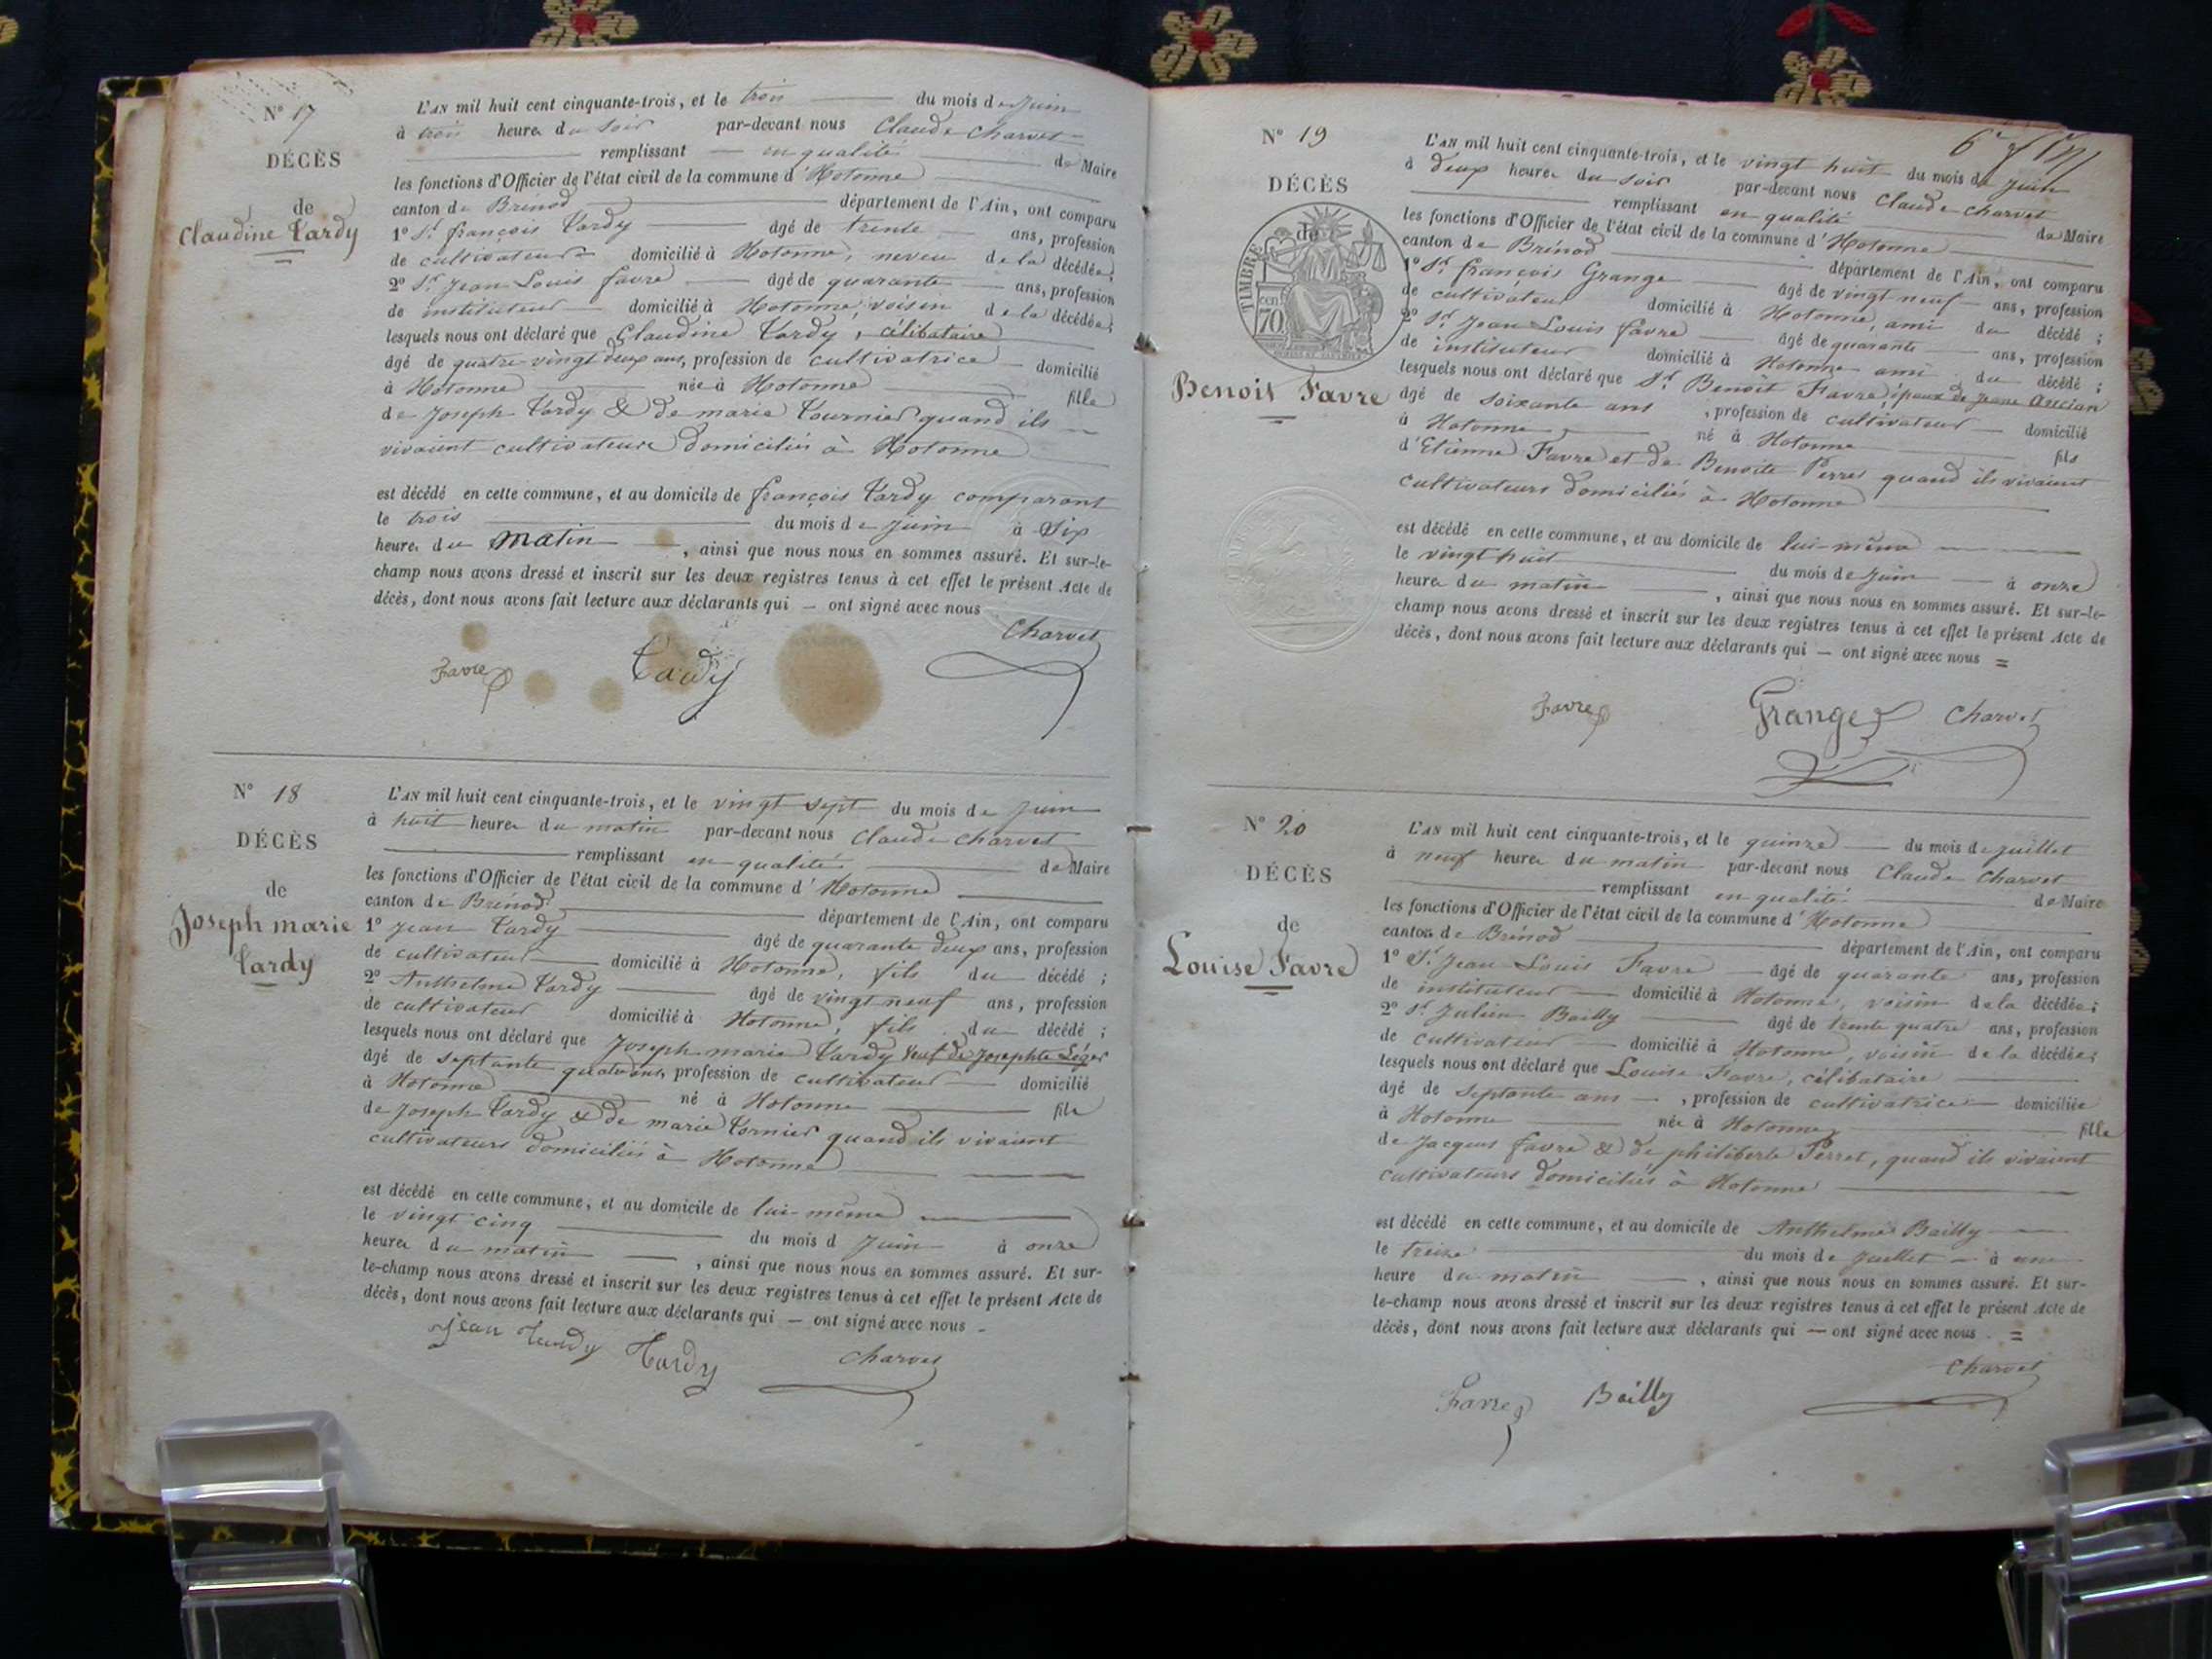 N° 17
DÉCÈS
de
Claudine Tardy
L'AN mil huit cent cinquante-trois, et le trois du mois de Juin
à trois heures du soir par-devant nous Claude Charvet
remplissant en qualité de Maire
les fonctions d'Officier de l'état civil de la commune d'Hotonne
canton de Brénod département de l'Ain, ont comparu
1° Sr. françois Tardy agé de trente ans, profession
de cultivateur domicilié à Hotonne, neveu de la décédée;
2° Sr. Jean Louis favre agé de quarante ans, profession
de instituteur domicilié à Hotonne, voisin de la décédée;
lesquels nous ont déclaré que Claudine Tardy, célibataire
agé de quatre vingt deux ans, profession de cultivatrice domicilié
à Hotonne née à Hotonne fille
de Joseph Tardy & de marie Tournier quand ils
vivaient cultivateurs domiciliés à Hotonne
est décédé en cette commune, et au domicile de françois Tardy comparant
le trois du mois de Juin à Six
heures du matin, ainsi que nous nous en sommes assuré. Et sur-le-
champ nous avons dressé et inscrit sur les deux registres tenus à cet effet le présent Acte de
décès, dont nous avons fait lecture aux déclarants qui — ont signé avec nous
Charvet
Favre Tardy
N° 18
DÉCÈS
de
Joseph marie
Tardy
L'AN mil huit cent cinquante-trois, et le vingt sept du mois de Juin
à huit heures du matin par-devant nous Claude Charvet
remplissant en qualité de Maire
les fonctions d'Officier de l'état civil de la commune d'Hotonne
canton de Brénod département de l'Ain, ont comparu
1° Jean Tardy âgé de quarante deux ans, profession
de cultivateur domicilié à Hotonne, fils du décédé;
2° Anthelme Tardy âgé de vingt neuf ans, profession
de cultivateur domicilié à Hotonne, fils du décédé;
lesquels nous ont déclaré que Joseph marie Tardy veuf de Josephte Léger
âgé de septante quatre ans, profession de cultivateur domicilié
à Hotonne né à Hotonne fils
de Joseph Tardy & de marie Tornier quand ils vivaient
cultivateurs domiciliés à Hotonne
est décédé en cette commune, et au domicile de lui-même
le vingt cinq du mois d Juin à onze
heures du matin, ainsi que nous nous en sommes assuré. Et sur-
le-champ nous avons dressé et inscrit sur les deux registres tenus à cet effet le présent Acte de
décès, dont nous avons fait lecture aux déclarants qui — ont signé avec nous
jean Tardy Tardy Charvet
N° 19
DÉCÈS
de
TIMBRE
70 cen
Benoit Favre
L'AN mil huit cent cinquante-trois, et le vingt huit du mois de Juin
à deux heures du soir par-devant nous Claude Charvet
remplissant en qualité de Maire
les fonctions d'Officier de l'état civil de la commune d'Hotonne
canton de Brénod département de l'Ain, ont comparu
1° Sr. françois Grange âgé de vingt neuf ans, profession
de cultivateur domicilié à Hotonne, ami du décédé;
2° Sr. Jean Louis favre âgé de quarante ans, profession
de instituteur domicilié à Hotonne ami du décédé;
lesquels nous ont déclaré que Sr. Benoit Favre, époux de Jeane
âgé de soixante ans, profession de cultivateur domicilié
à Hotonne né à Hotonne fils
d'Etienne Favre et de Benoite Perret quand ils vivaient
cultivateurs domiciliés à Hotonne
est décédé en cette commune, et au domicile de lui-même
le vingt huit du mois de Juin à onze
heures du matin, ainsi que nous nous en sommes assuré. Et sur-le-
champ nous avons dressé et inscrit sur les deux registres tenus à cet effet le présent Acte de
décès, dont nous avons fait lecture aux déclarants qui — ont signé avec nous
Favre Grange Charvet
N° 20
DÉCÈS
de
Louise Favre
L'AN mil huit cent cinquante-trois, et le quinze du mois de Juillet
à neuf heures du matin par-devant nous Claude Charvet
remplissant en qualité de Maire
les fonctions d'Officier de l'état civil de la commune d'Hotonne
canton de Brénod département de l'Ain, ont comparu
1° Sr. Jean Louis Favre âgé de quarante ans, profession
de instituteur domicilié à Hotonne, voisin de la décédée;
2° Sr. Julien Bailly âgé de trente quatre ans, profession
de cultivateur domicilié à Hotonne, voisin de la décédée;
lesquels nous ont déclaré que Louise Favre, célibataire
âgé de septante ans, profession de cultivatrice domiciliée
à Hotonne née à Hotonne fille
de Jacques favre & de philiberte Perret, quand ils vivaient
cultivateurs domiciliés à Hotonne
est décédé en cette commune, et au domicile de Anthelme Bailly
le treize du mois de Juillet à une
heure du matin, ainsi que nous nous en sommes assuré. Et sur-
le-champ nous avons dressé et inscrit sur les deux registres tenus à cet effet le présent Acte de
décès, dont nous avons fait lecture aux déclarants qui — ont signé avec nous.
Charvet
Favre Bailly